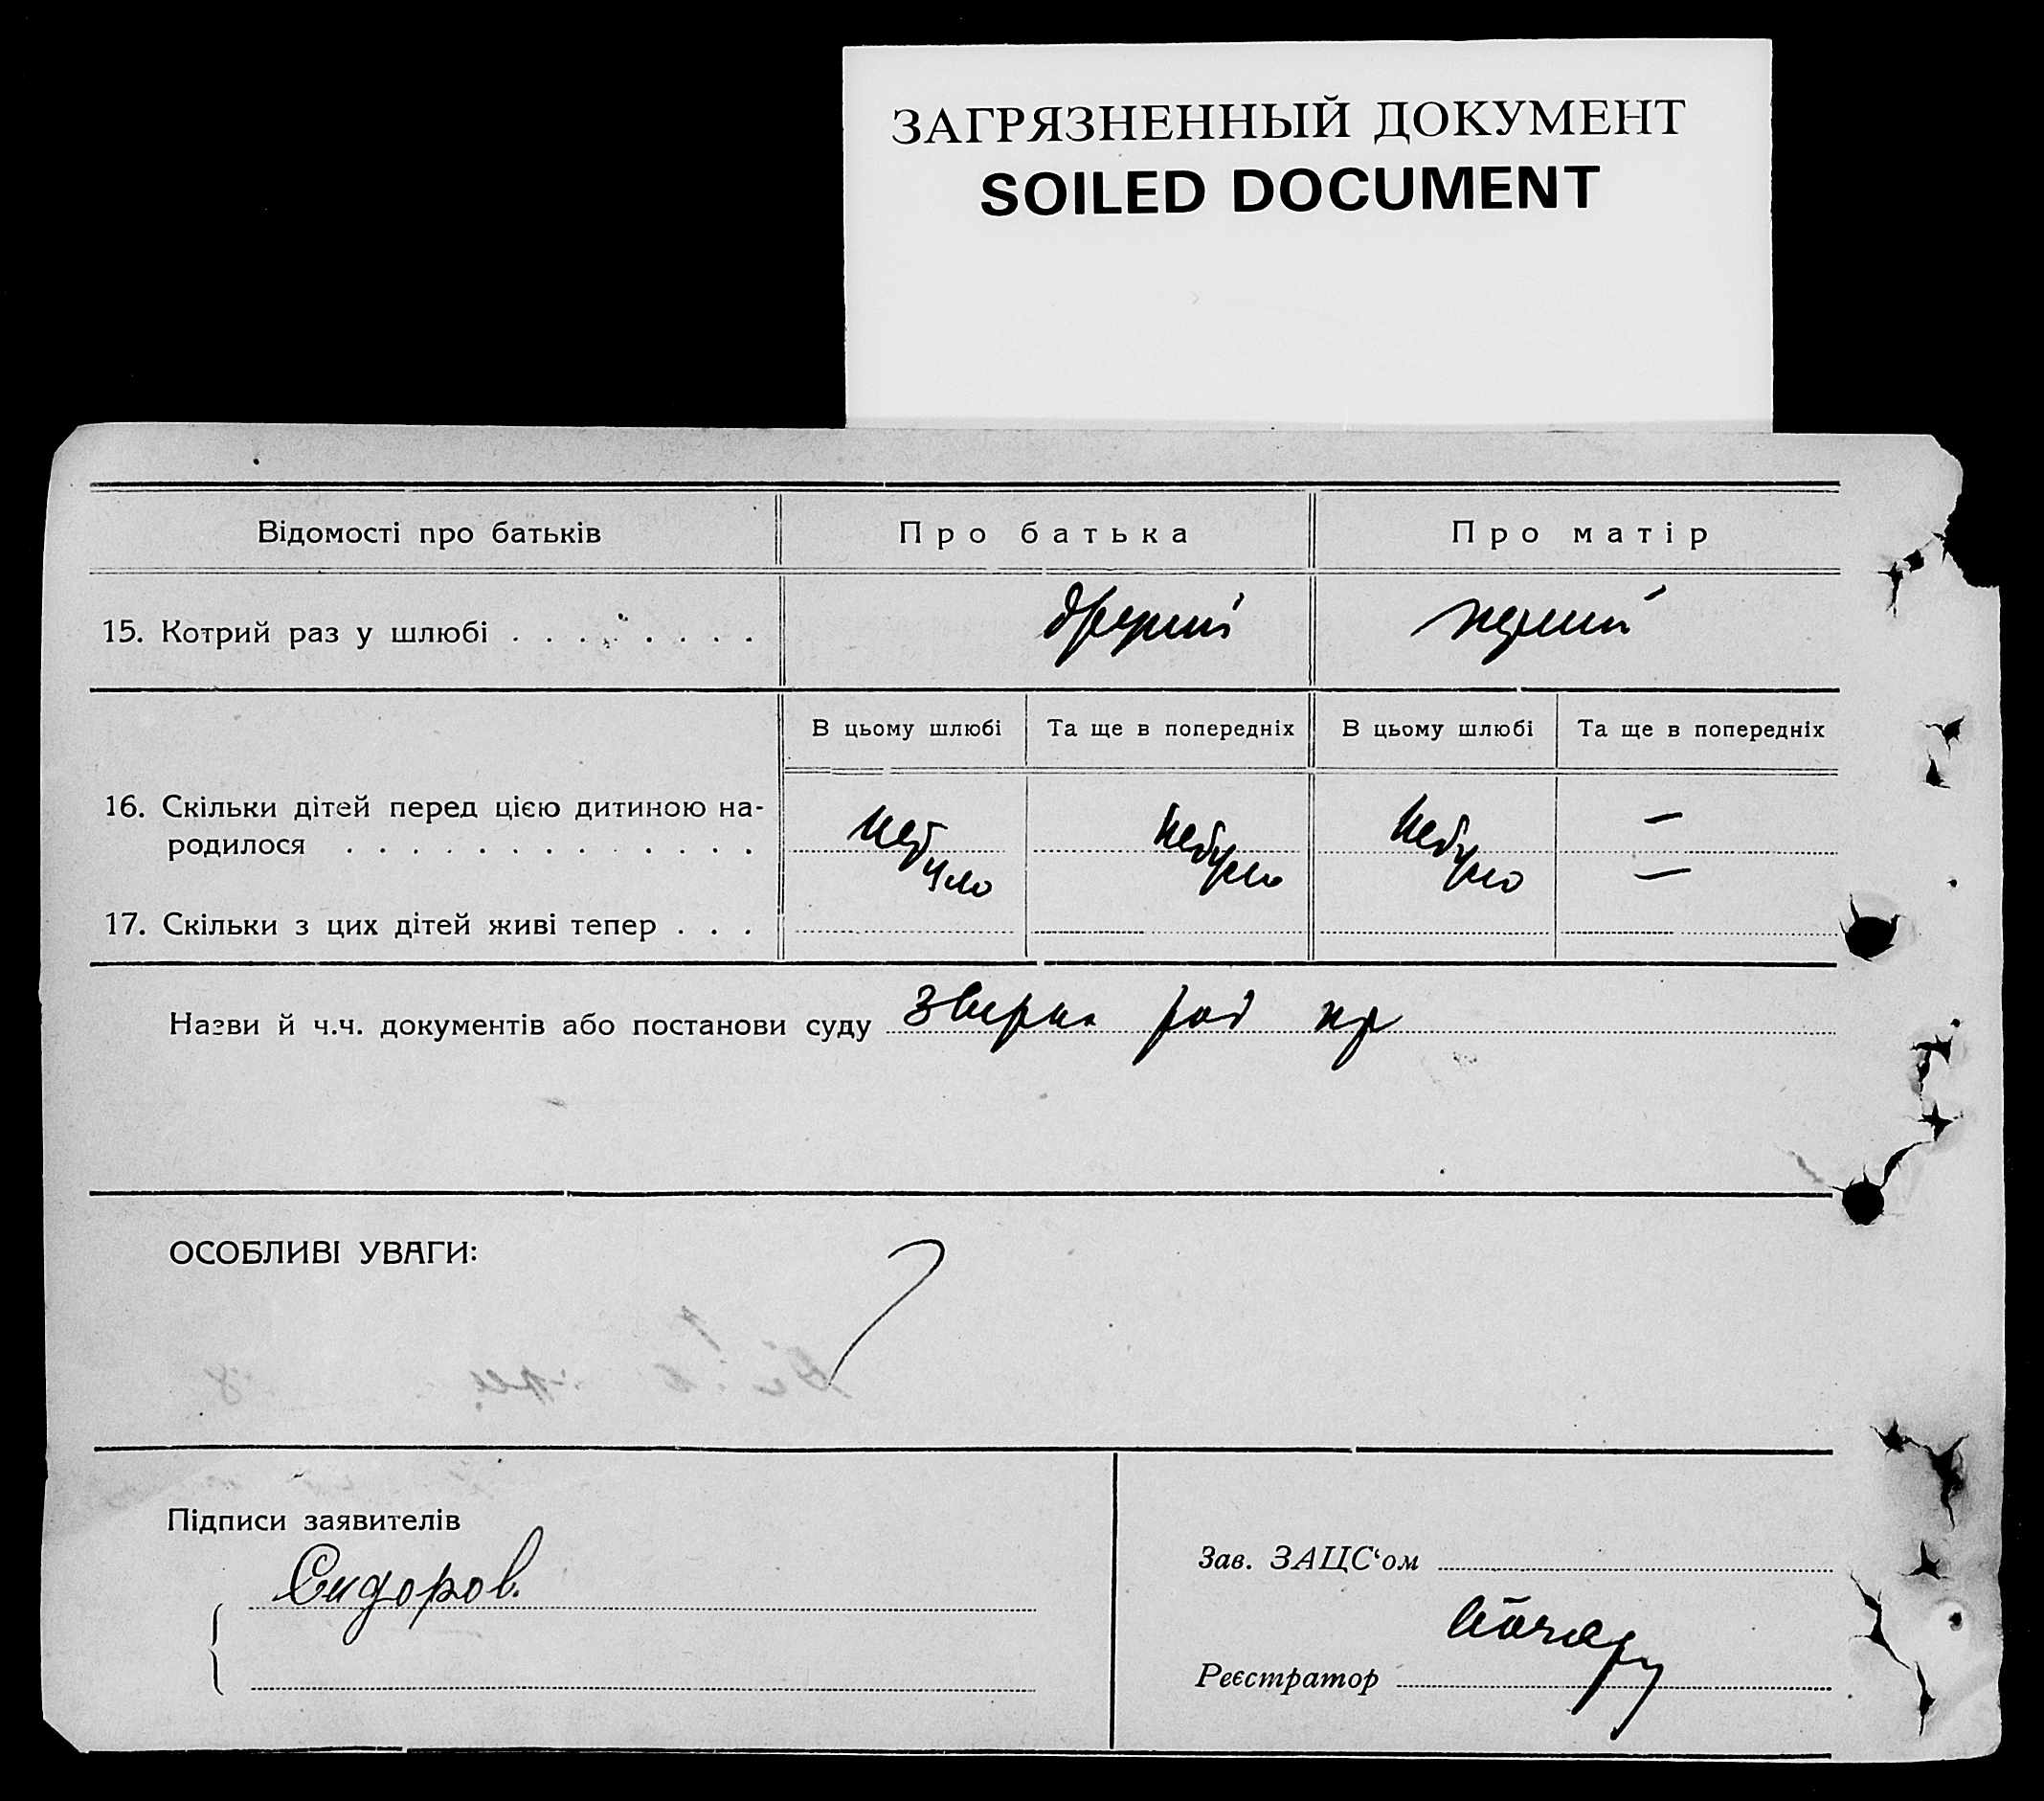 ЗАГРЯЗНЕННЫЙ ДОКУМЕНТ
SOILED DOCUMENT
Відомості про батьків Про батька Про матір
15. Котрий раз у шлюбі . . . . . . . .
В цьому шлюбі Та ще в попередніх В цьому шлюбі Та ще в попередніх
16. Скільки дітей перед цією дитиною на-
родилося . . . . . . . . . . . . .
небуло небуло небуло —
—
17. Скільки з цих дітей живі тепер . . .
Назви й ч.ч. документів або постанови суду
ОСОБЛИВІ УВАГИ:
Підписи заявителів
Сидоров.
Зав. ЗАЦС‘ом
Реєстратор